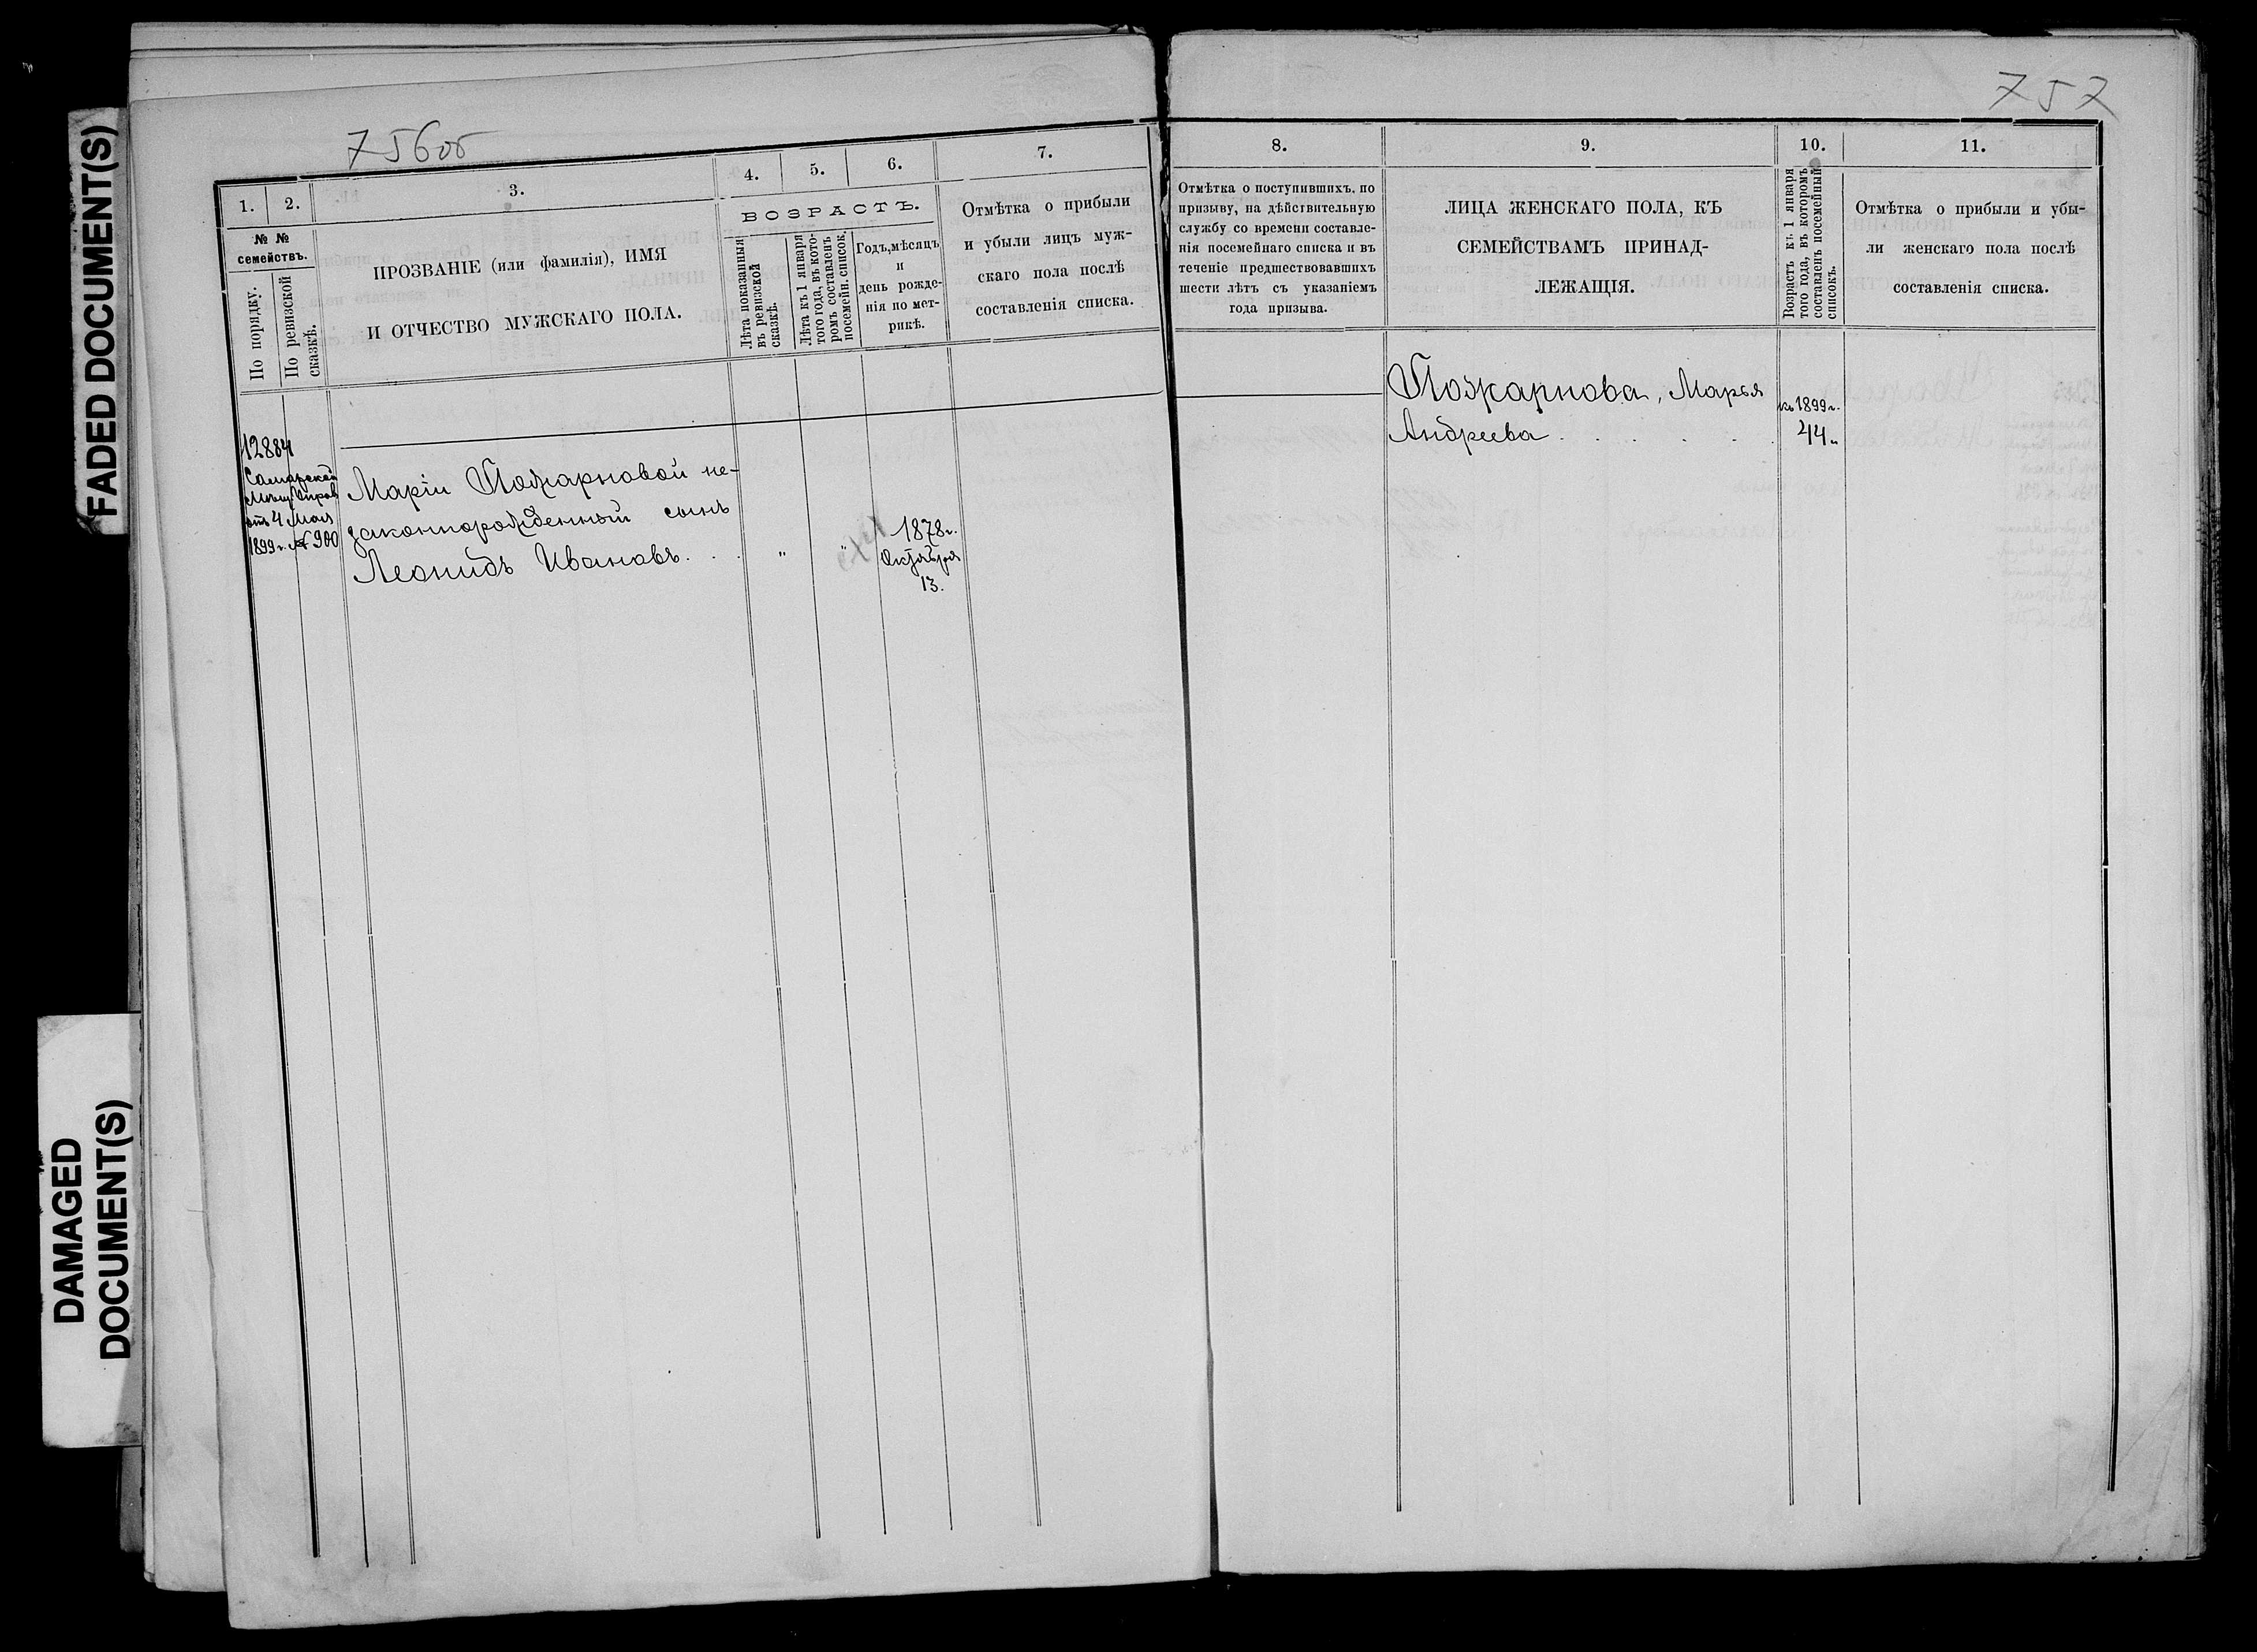 FADED DOCUMENT(S)
DAMAGED
DOCUMENT(S)
756об
757
1.
2.
3.
4.
5.
6.
7.
№ №
семействъ.
По порядку.
По ревизской
сказкѣ.
ПРОЗВАНІЕ (или фамилія), ИМЯ
И ОТЧЕСТВО МУЖСКАГО ПОЛА.
ВОЗРАСТЪ.
Лѣта показанныя
въ ревизской
сказкѣ.
Лѣта къ 1 января
того года, въ кото-
ромъ составленъ
посемейн. список.
Годъ, мѣсяцъ
и
день рожде-
нія по мет-
рикѣ.
Отмѣтка о прибыли
и убыли лицъ муж-
скаго пола послѣ
составленія списка.
12884
Самарской
Мѣщ. Управ
отъ 4 Мая
1899 г. № 900
Маріи Пожарновой не-
законнорожденный сынъ
Леонидъ Ивановъ. . .
"
"
1878 г.
Октября
13.
8.
9.
10.
11.
Отмѣтка о поступившихъ, по
призыву, на дѣйствительную
службу со времени составле-
нія посемейнаго списка и въ
теченіе предшествовавшихъ
шести лѣтъ съ указаніемъ
года призыва.
ЛИЦА ЖЕНСКАГО ПОЛА, КЪ
СЕМЕЙСТВАМЪ ПРИНАД-
ЛЕЖАЩІЯ.
Возрастъ къ 1 января
того года, въ которомъ
составленъ посемейный
списокъ.
Отмѣтка о прибыли и убы-
ли женскаго пола послѣ
составленія списка.
Пожарнова, Марья
Андреева . . . . . .
къ 1899 г.
44 "